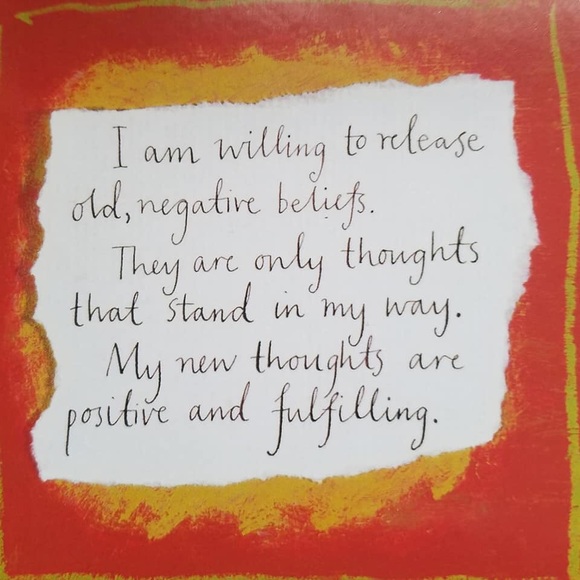 I am willing to release
old, negative beliefs.
They are only thoughts
that stand in my way.
My new thoughts are
positive and fulfilling.